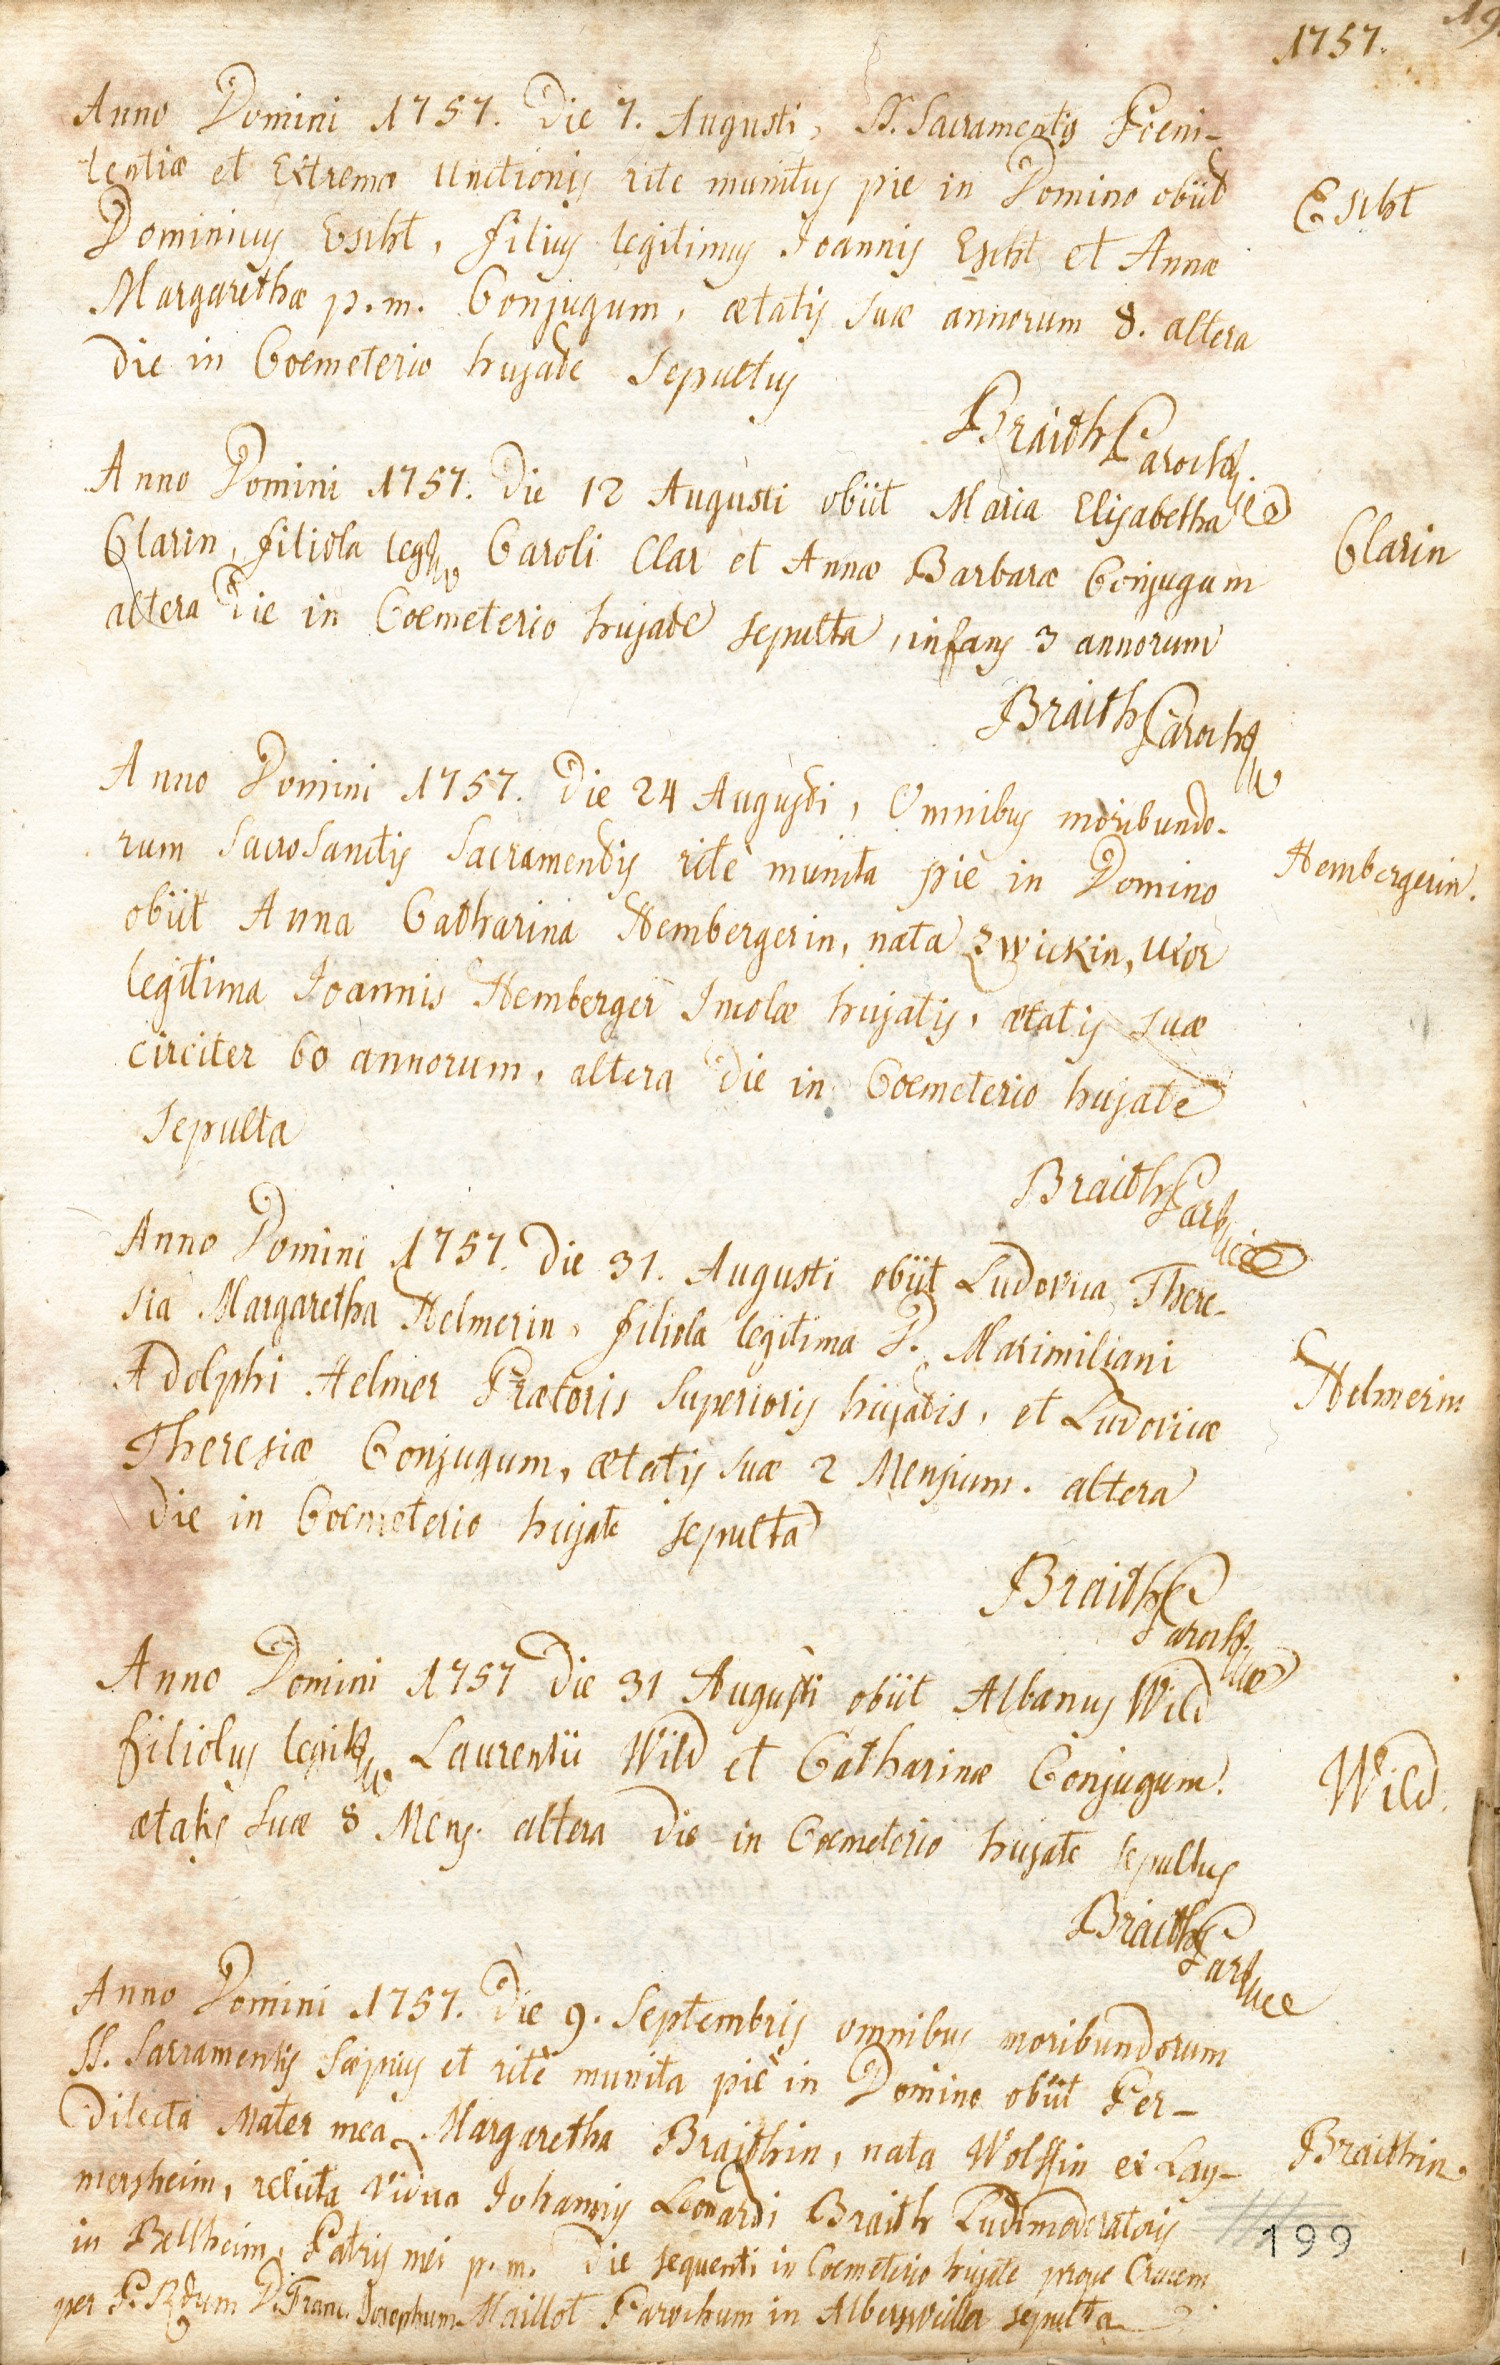 1757.
Anno Domini 1757. Die 7. Augusti, SS. Sacramentis Poeni-
tentiæ et Extremæ Unctionis rite munitus pie in Domino obiit
Dominicus Escht, filius legitimus Joannis Escht et Annæ
Escht
Margarethæ p.m. Conjugum, ætatis suæ annorum 8. altera
die in Coemeterio hujate sepultus
Braith Parochus
Anno Domini 1757. Die 12 Augusti obiit Maria Elisabetha
Clarin, filiola leg. Caroli Clar et Annæ Barbaræ Conjugum
Clarin
altera die in Coemeterio hujate sepulta, infans 3 annorum
Braith Parochus
Anno Domini 1757. Die 24 Augusti, Omnibus moribundo-
rum Sacrosanctis Sacramentis ritè munita piè in Domino
Hembergerin.
obiit Anna Catharina Hembergerin, nata Zwickin, Uxor
legitima Joannis Hemberger Incolæ hujatis, ætatis suæ
circiter 60 annorum, altera die in Coemeterio hujate
sepulta
Braith Par
Anno Domini 1757. Die 31. Augusti obiit Ludovica There-
sia Margaretha Helmerin, filiola legitima D. Maximiliani
Adolphi Helmer Prætoris Superioris hujatis, et Ludovicæ
Helmerin
Theresiæ Conjugum, ætatis suæ 2 Mensium. altera
die in Coemeterio hujate sepulta
Braith Paroch.
Anno Domini 1757 Die 31 Augusti obiit Albanus Wild
filiolus legit. Laurentii Wild et Catharinæ Conjugum.
Wild.
ætatis suæ 8 Mens. altera die in Coemeterio hujate sepultus
Braith Par
Anno Domini 1757. Die 9. Septembris omnibus moribundorum
SS. Sacramentis Sæpius et ritè munita piè in Domino obiit Per-
dilecta Mater mea Margaretha Braithin, nata Wolffin ex Lay-
Braithin
mersheim, relicta vidua Johannis Leonardi Braith Ludimoderatoris
199
in Bellheim, Patris mei p.m. Die sequenti in Coemeterio hujate prope Crucem
per P. Rdum D. Franc. Josephum Maillot Parochum in Albersweiller sepulta